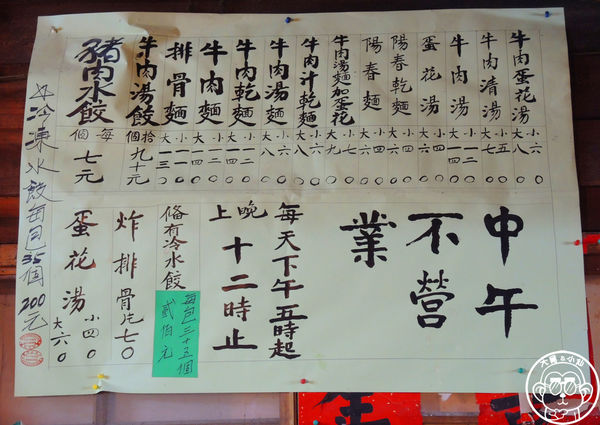 牛肉蛋花湯 大八〇 小六〇
牛肉清湯 大六〇 小五〇
牛肉湯 大一四〇 小一二〇
蛋花湯 大六〇 小四〇
陽春乾麵 大六〇 小四〇
陽春麵 大六〇 小四〇
牛肉湯麵加蛋花 大九〇 小七〇
牛肉汁乾麵 大八〇 小六〇
牛肉湯麵 大八〇 小六〇
牛肉乾麵 大一四〇 小一二〇
牛肉麵 大一四〇 小一二〇
排骨麵 大一三〇 小一一〇
牛肉湯餃 拾個 九十元
豬肉水餃 每個 七元
中午
不營
業
每天下午五時起
晚上十二時止
備有冷水餃
每包三十五個
貳佰元
炸排骨片七〇
蛋花湯 小四〇 大六〇
冷凍水餃每包35個200元
大鳳&小灿